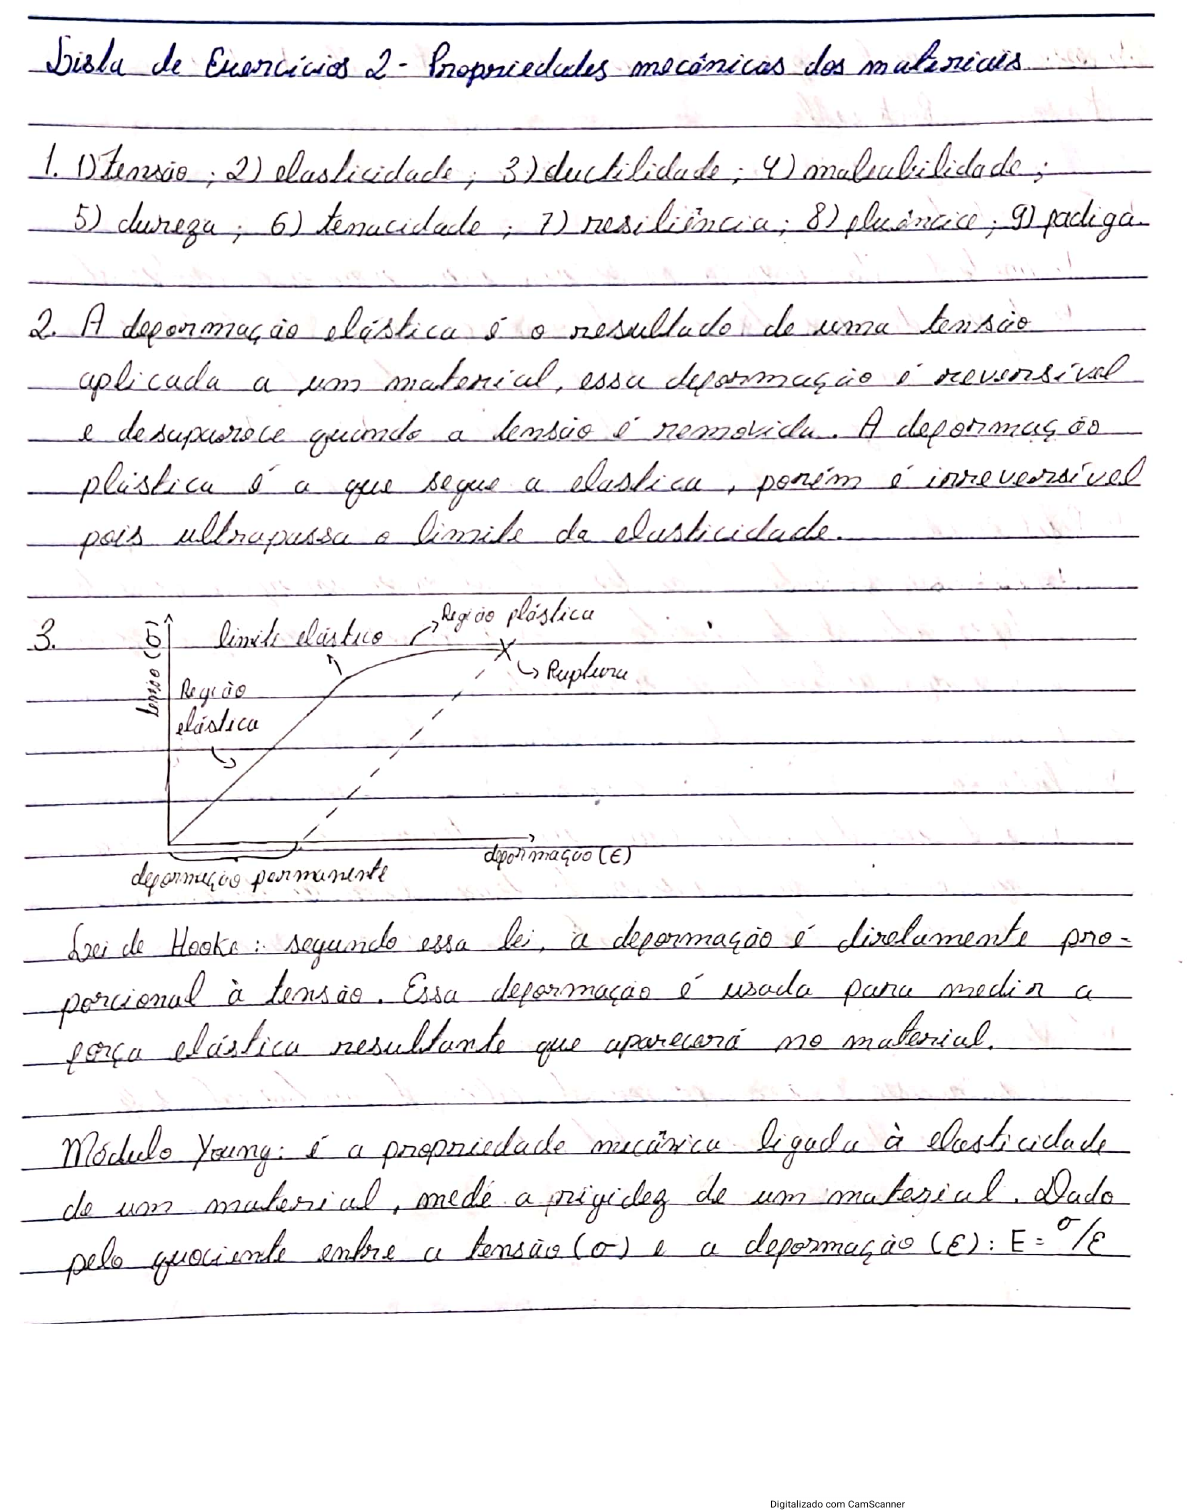 Lista de Exercícios 2 - Propriedades mecânicas dos materiais
1. 1) tensão ; 2) elasticidade ; 3) ductilidade ; 4) maleabilidade ;
5) dureza ; 6) tenacidade ; 7) resiliência ; 8) fluência ; 9) fadiga.
2. A deformação elástica é o resultado de uma tensão
aplicada a um material, essa deformação é reversível
e desaparece quando a tensão é removida. A deformação
plástica é a que segue a elastica, porém é irreversível
pois ultrapassa o limite da elasticidade.
3.
tensão (σ)
limite elástico
Região plástica
Ruptura
Região
elástica
deformação (ε)
deformação permanente
Lei de Hooke: segundo essa lei, a deformação é diretamente pro-
porcional à tensão. Essa deformação é usada para medir a
força elástica resultante que aparecerá no material.
Módulo Young: é a propriedade mecânica ligada à elasticidade
de um material, mede a rigidez de um material. Dado
pelo quociente entre a tensão (σ) e a deformação (ε): E = σ/ε
Digitalizado com CamScanner